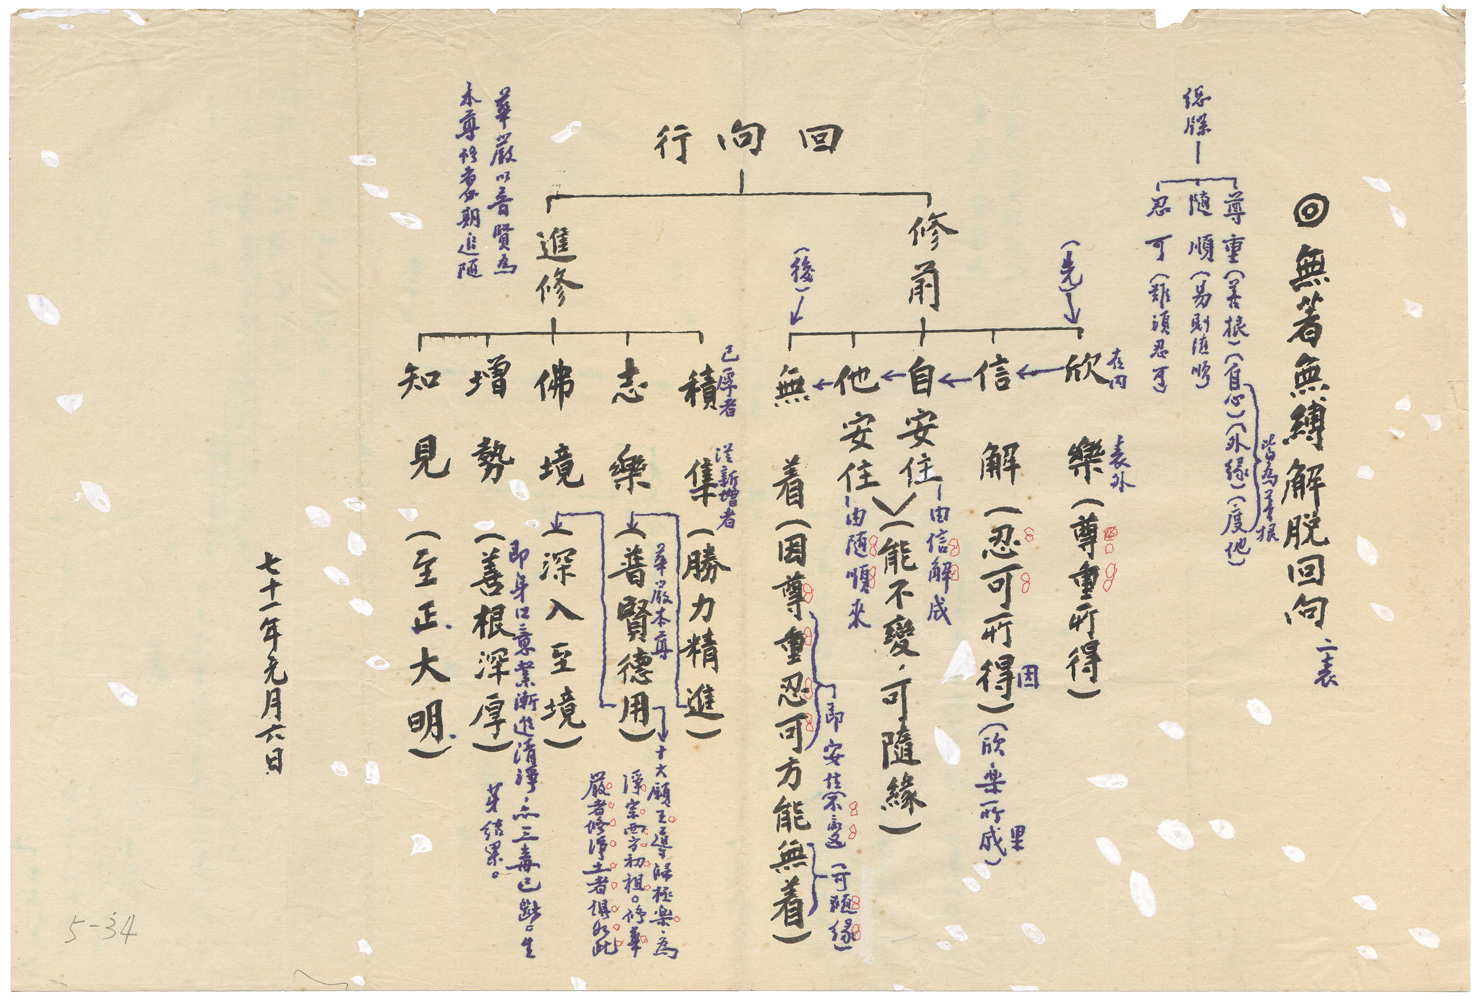 ◎無著無縛解脫回向 二表
尊重(善根)(自心)(外緣)(度他)
皆為善根
隨順(易則隨順
忍可(難須忍可
回向行
修前
(先)
(後)
欣樂(尊重所得)
在內
表外
信解(忍可所得)(欣樂所成)
因
果
自安住
由信解成
他安住
由隨順來
(能不變,可隨緣)
無着(因尊重忍可方能無着)
即安住(不變)(可隨緣)
進修
積集(勝力精進)
已厚者
從新增者
志樂(普賢德用)
華嚴本尊
十大願王導歸極樂,為
淨宗西方初祖。修華
嚴者修淨土者俱如此
佛境(深入至境)
增勢(善根深厚)
即身口意業漸進清淨,亦三毒已斷。生
芽結果。
知見(至正、大明、)
華嚴以普賢為
本尊修者必期追隨
七十一年元月六日
5-34